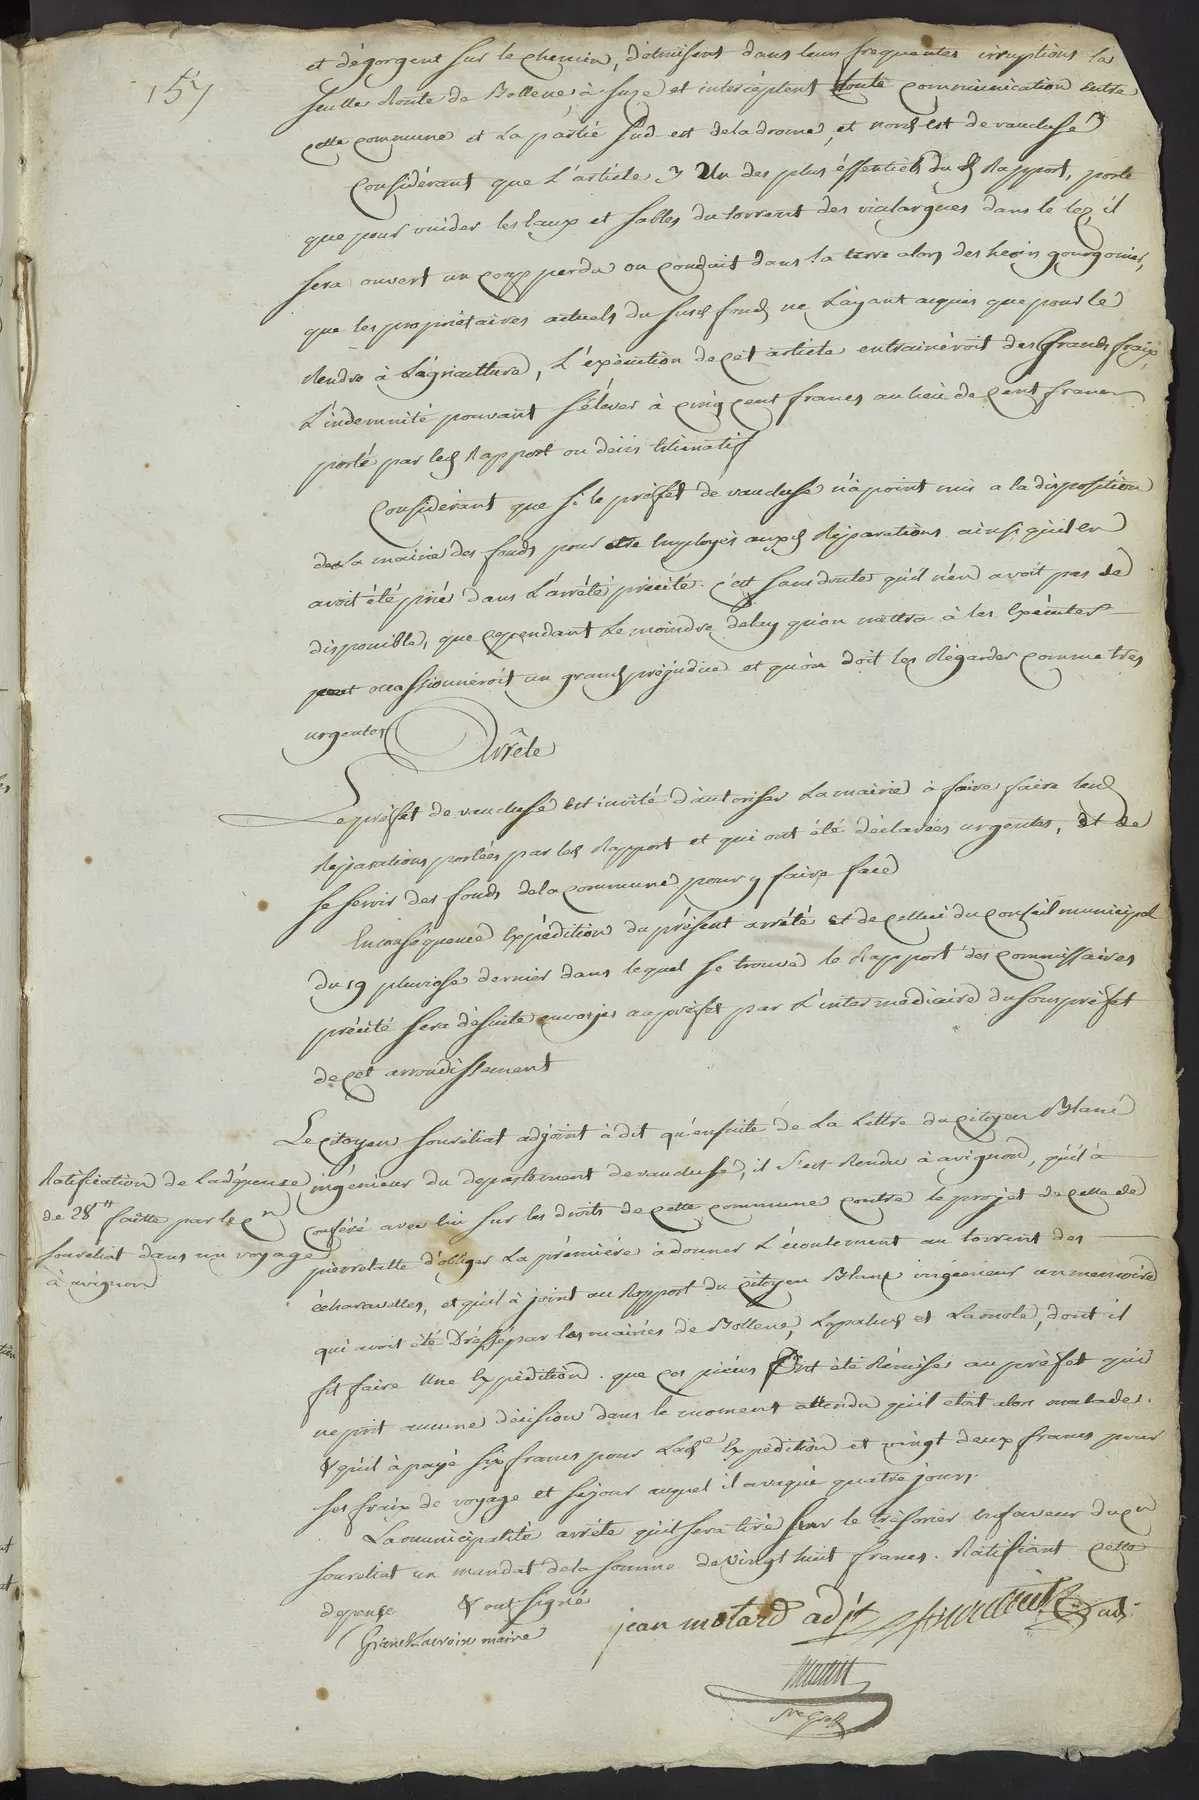 157
et dégorgent sur le chemin, détruisent dans leurs frequentes irruptions la
seulle Route de Bollene à Suze et interceptent toute communication entre
cette commune et la partie sud est de la drome, et nord est de vaucluse
Considérant que L'article 3 Un des plus éssentiels du d Rapport, porte
que pour vuider les Eaux et sables du torrent des vialargues dans le lez, il
sera ouvert un perdu ou conduit dans la terre alors des hoirs gourgonier,
que les proprietaires actuels du susd fond ne L'ayant acquis que pour le
Rendre à L'agriculture, L'éxécution de cet article entraineroit des Grands fraix,
L'indemnité pouvant s'élever à cinq cent francs au lieu de cent francs
porté par led Rapport ou devis Estimatif
Considérant que si le préfet de vaucluse n'a point mis a la disposition
de la mairie des fonds pour etre Employés auxd Réparations ainsi qu'il en
avoit été prié dans L'arrêté précité. c'est sans doute qu'il n'en avoit pas de
disponible, que cependant Le moindre delay qu'on mettra à les Exécuter
peut occassionneroit un grand préjudice et qu'on doit les Régarder comme très
urgentes
Arrête
Le préfet de vaucluse Est invité d'autoriser La mairie à faire faire lesd
Réparations portées par led Rapport et qui ont été déclarées urgentes, et de
se servir des fonds de la commune pour y faire face
En conséquence Expédition du présent arrêté et de celluy du conseil municipal
du 19 pluviose dernier dans lequel se trouve le Rapport des commissaires
précité sera désuite envoyés au préfet par L'intermediaire du sous préfet
de cet arrondissement
Le citoyen Souveliat adjoint à dit qu'ensuite de La Lettre du citoyen Blanc
Ratification de La dépense
de 28# faitte par le Cn
Souveliat dans un voyage
à avignon
ingénieur du departement de vaucluse, il s'est Rendu à avignon, qu'il à
conféré avec lui sur les droits de cette commune contre le projet de celle de
pierrelatte d'obliger La première à donner L'écoulement au torrent des
écharavelles, et qu'il à joint au Rapport du Citoyen Blanc ingénieur un memoire
qui avoit été Dréssé par les mairies de Bollene, Lapalud et Lamote, dont il
fit faire Une Expédition. que ces pieces Ont été Remises au préfet qui
ne prit aucune décision dans le moment attendu qu'il etoit alors malade.
& qu'il à payé six francs pour Lade Expédition et vingt deux francs pour
ses fraix de voyage et séjour auquel il a vaqué quatre jours.
La municipalité arrête qu'il sera tiré sur le trésorier En faveur du Cn
Souveliat un mandat de la somme de vingt huit francs. Ratifiant cette
depense & ont signé
Granet Lacroix maire
jean motard adjt
adj